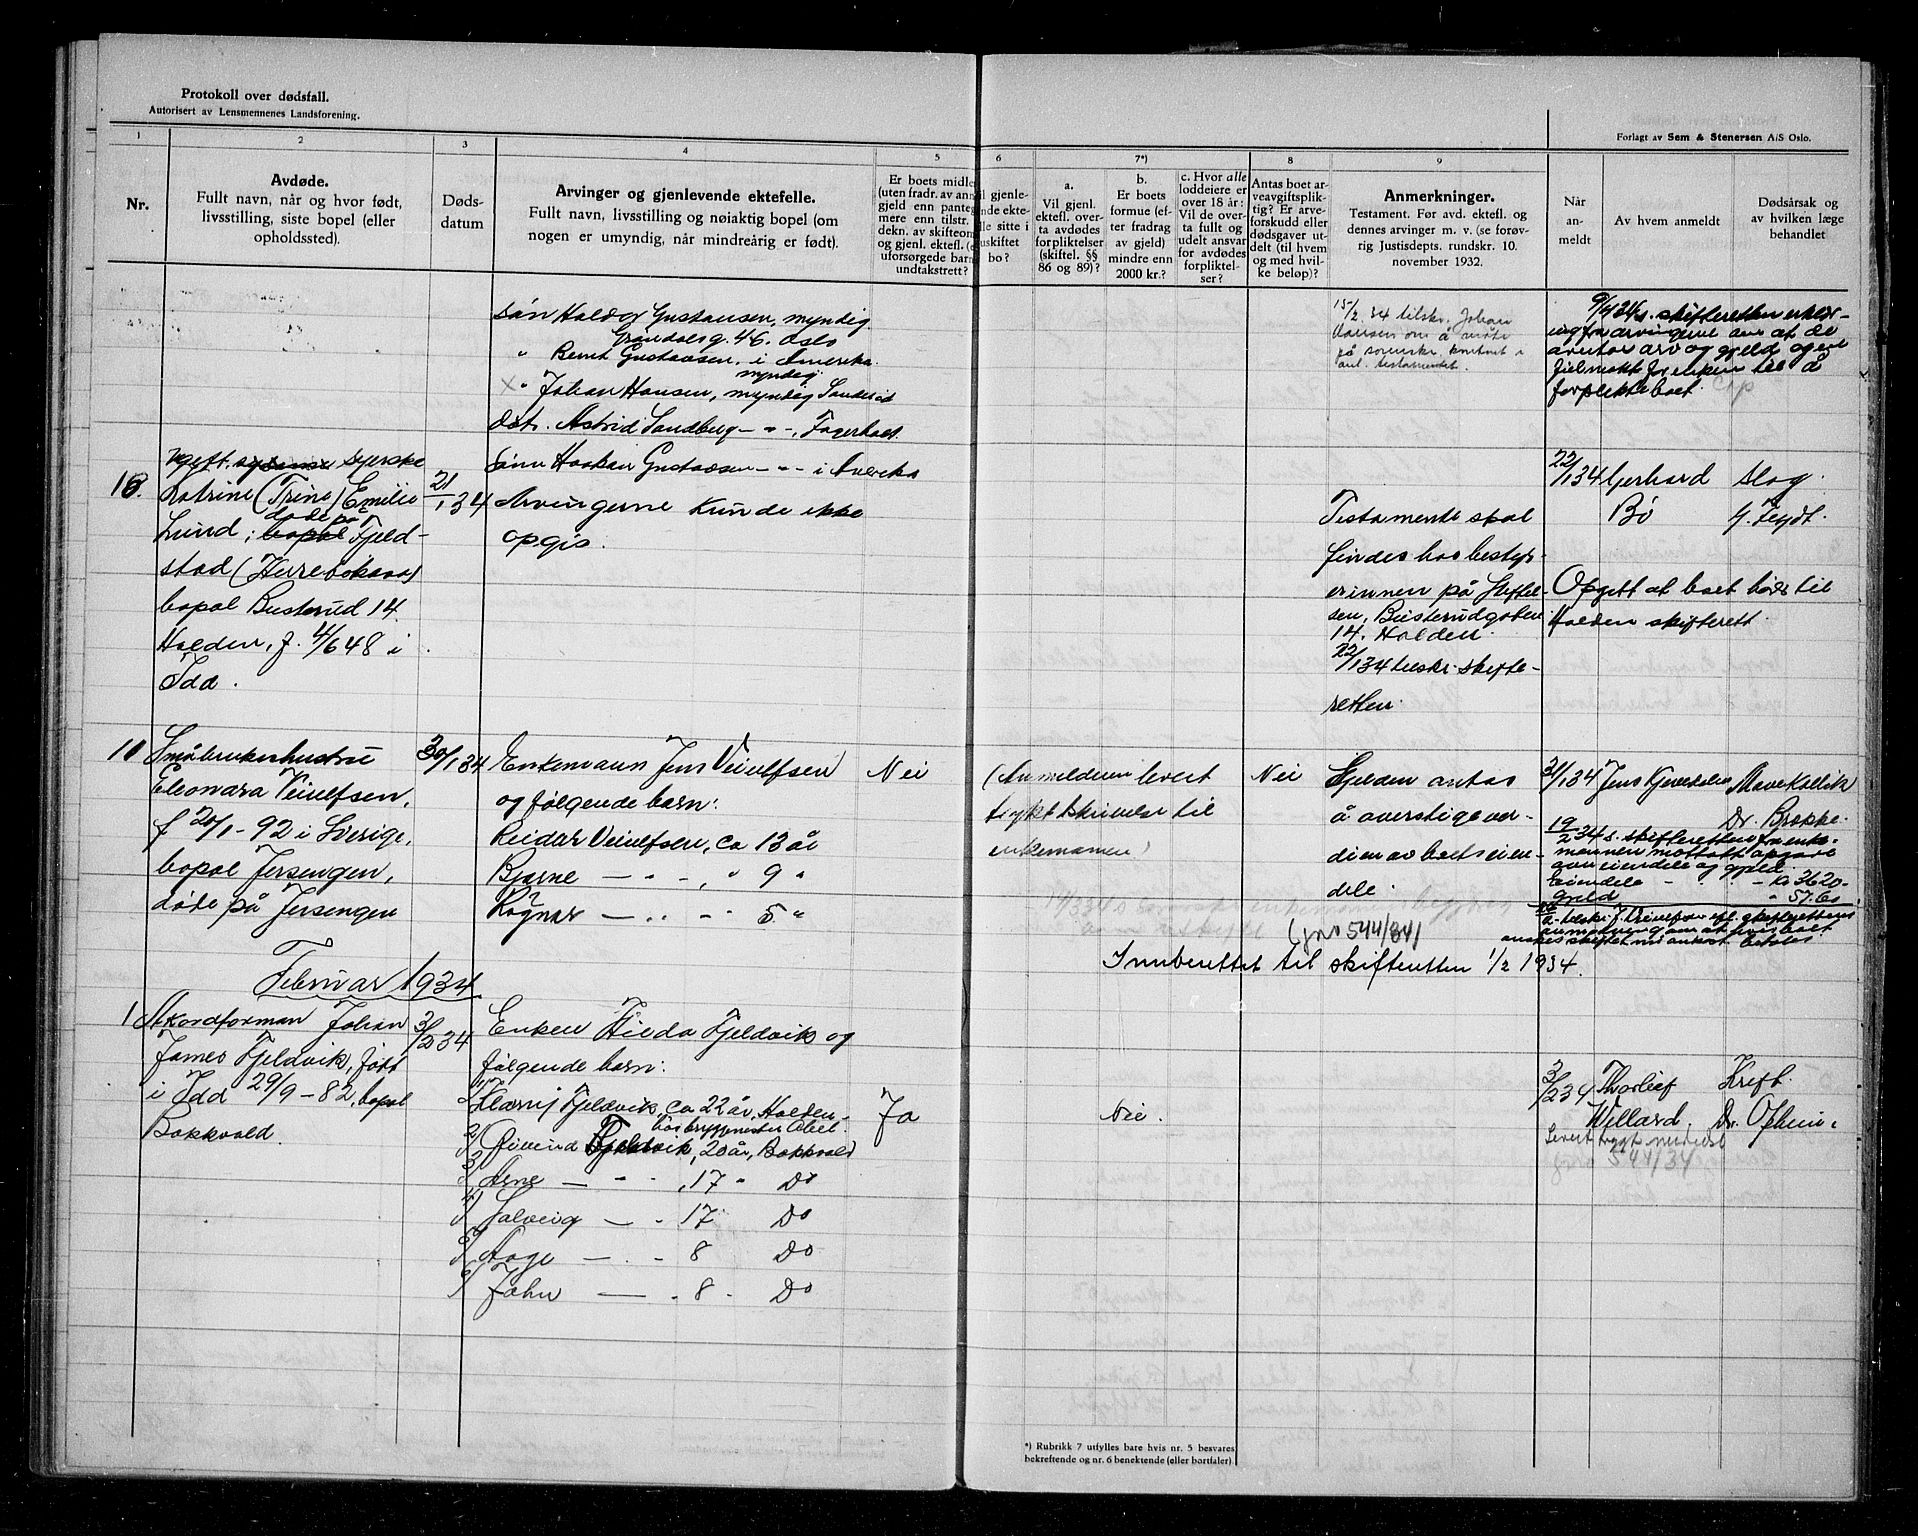 Protokoll over dødsfall.
Autorisert av Lensmennenes Landsforening.
Forlagt av Sem & Stenersen A/S Oslo.
1 2 3 4 5 6 7*) 8 9
Nr.
Avdøde.
Fullt navn, når og hvor født,
livsstilling, siste bopel (eller
opholdssted).
Døds-
datum
Arvinger og gjenlevende ektefelle.
Fullt navn, livsstilling og nøiaktig bopel (om
nogen er umyndig, når mindreårig er født).
Er boets midle
(uten fradr. av ann
gjeld enn panteg
mere enn tilstr.
dekn. av skifteom
og gjenl. ektef.
uforsørgede barn
undtakstrett?
il gjenle-
nde ekte-
lle sitte i
uskiftet
bo?
a.
Vil gjenl.
ektefl. over-
ta avdødes
forpliktelser
(skiftel. §§
86 og 89)?
b.
Er boets
formue (ef-
ter fradrag
av gjeld)
mindre enn
2000 kr.?
c. Hvor alle
loddeiere er
over 18 år:
Vil de over-
ta fullt og
udelt ansvar
for avdødes
forpliktel-
ser?
Antas boet ar-
veavgiftsplik-
tig? Er arve-
forskudd eller
dødsgaver ut-
delt (til hvem
og med hvil-
ke beløp)?
Anmerkninger.
Testament. Før avd. ektefl. og
dennes arvinger m. v. (se forøv-
rig Justisdepts. rundskr. 10.
november 1932.
Når
an-
meldt
Av hvem anmeldt
Dødsårsak og
av hvilken læge
behandlet
Søn Haldor Gustavsen, myndig
g. 46. Oslo
" Bernt Gustavsen, i Amerika
myndig
x " Johan Hansen, myndig
Dat. Astrid Sandberg - " - , Fagerholt
Sønn Haakan Gustavsen - " - i Amerika
15/2 34 tilskr. Johan
Hansen om å møte
på kontret i
anl. testamentet.
9/4 34 s. skifteretten erklær-
ing fra arvingene om at de
arv og gjeld og en
for enken til å
forplikte boet
Ugift syerske
16.
Katrine (Trina) Emilie
Lund; døde på
bopel Fjeld-
stad (Herrebøkasa)
bopel Busterud 14.
Halden, f. 4/6 48 i
Idd.
21/1 34
Arvingerne kunde ikke
opgis.
Testamente skal
findes hos bestyr-
erinnen på Stiftel-
sen, Busterudgaten
14. Halden.
22/1 34 tilskr. skifte-
retten.
22/1 34 Gerhard
Bø
Slag.
Opgitt at boet hører til
Halden skifterett.
10
Småbrukerhustru
Eleonara Veiulfsen,
f 20/1 - 92 i Sverige,
bopæl Jersengen,
døde på Jersengen
30/1 34
Enkemann Jens Veiulfsen
og følgende barn:
Reidar Veiulfsen, ca 13 år
Bjarne - " - , " 9 "
Ragnar - " - " 5 "
Nei
(Anmelderen levert
trykt skrivelse til
enkemannen)
Nei
Gjelden antas
å overstige ver-
dien av boets eien-
dele.
(jno 544/34)
31/1 34 Jens
Mavekollik
Dr. Brække.
19/2 34 s. skifteretten fra enke-
mannen mottatt opgave
over eiendele og gjeld
Eiendele - - - Kr 3620-
Gjeld - " 5760
Innberettet til skifteretten 1/2 1934.
Februar 1934
1
Akordforman Johan
James Fjeldvik, født
i Idd 29/9 - 82, bopel
Bakkvold.
3/2 34
Enken Hilda Fjeldvik og
følgende barn:
1) Fjeldvik, ca 22 år, Halden
hos bryggmester Abel.
2) Øivind Fjeldvik, 20 år, Bakkvold
3) Arne - " - " , 17 " Do
4) Solveig - " 17 Do
5) Aage - " - 8 Do
6) John - " 8 " Do
Ja
Nei.
3/2 34 Thorleif
Willard.
Kreft.
Levert trygt
jno 544/34
*) Rubrikk 7 utfylles bare hvis nr. 5 besvares
bekreftende og nr. 6 benektende (eller bortfaler).